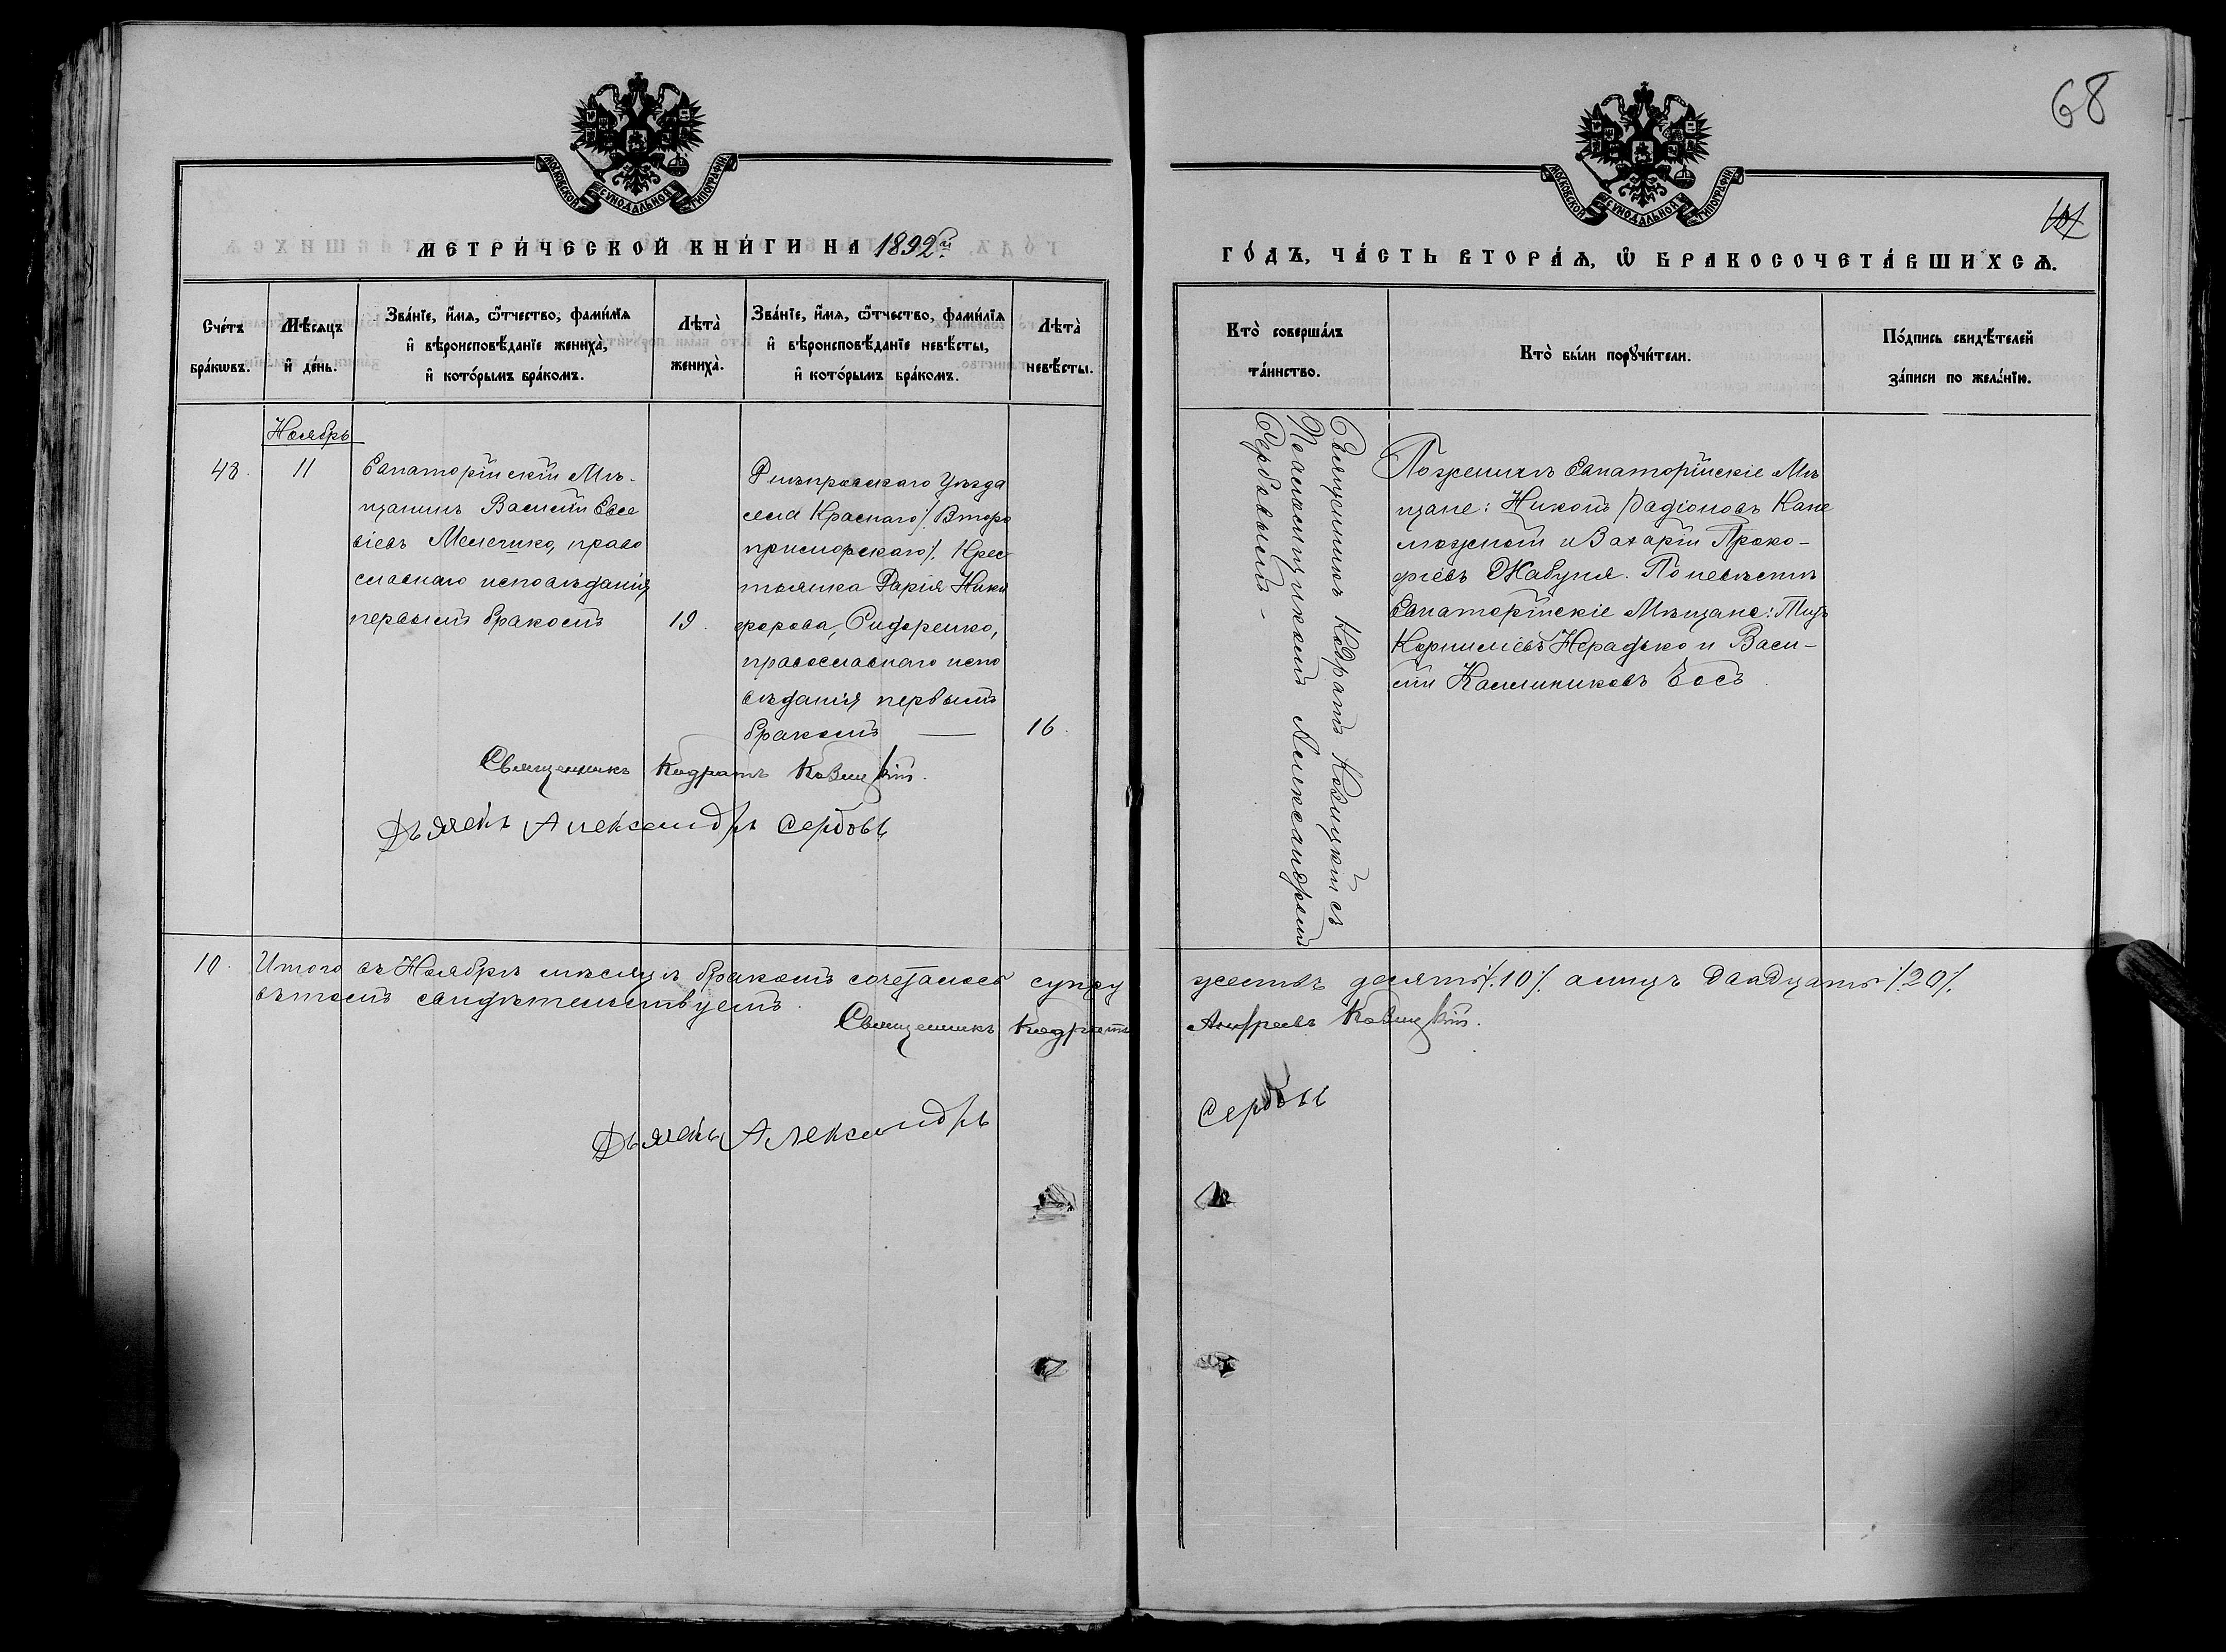 68
МОСКОВСКОЙ СУНОДАЛЬНОЙ ТИПОГРАФІИ
МОСКОВСКОЙ СУНОДАЛЬНОЙ ТИПОГРАФІИ
МЕТРИ́ЧЕСКОЙ КНИ́ГИ НА 1892й
ГО́ДЪ, ЧА́СТЬ ВТОРА́Ѧ, Ѽ БРАКОСОЧЕТА́ВШИХСѦ.
Сче́тъ
бра́кѡвъ.
Мѣ́сѧцъ
и҆ де́нь.
Зва́нїе, и҆́мѧ, ѻ҆́тчество, фами́лїѧ
и҆ вѣроисповѣ́данїе жениха̀,
и҆ кото́рымъ бра́комъ.
Лѣта̀
жениха̀.
Зва́нїе, и҆́мѧ, ѻ҆́тчество, фами́лїѧ
и҆ вѣроисповѣ́данїе невѣ́сты,
и҆ кото́рымъ бра́комъ.
Лѣта̀
невѣ́сты.
Кто̀ соверша́лъ
та́инство.
Кто̀ бы́ли порꙋчи́тели.
По́дпись свидѣ́телей
за́писи по жела́нїю.
Ноябрь
48.
11
Евпаторійскій Мѣ-
щанинъ Василій Евсе
віевъ Мелечико, право
славнаго исповѣданія
первымъ бракомъ
19.
Днѣпровскаго Уѣзда
села Краснаго /. Второ
приморскаго /. Крес
тьянка Дарія Ники
форова, Сидоренко,
православнаго испо
вѣданія первымъ
бракомъ —
16.
Священникъ Кодратъ Козицкій.
Дьячекъ Александръ Сербовъ
Священникъ Кодратъ Козицкій съ
Псаломщикомъ Александромъ
Сербовымъ -
По женихѣ Евпаторійскіе Мѣ
щане: Никонъ Радіоновъ
и Захарій Проко-
фіевъ Жабуня. По невѣстѣ
Евпаторійскіе Мѣщане: Титъ
Корниліевъ Нерадько и Васи-
лій Калиниковъ Босъ.
10. Итого въ Ноябрѣ мѣсяцѣ бракомъ сочеталось супру
жествъ десять /.10/. а лицъ двадцать /.20/.
въ томъ свидѣтельствуетъ
Священникъ Кодратъ
Андреевъ Козицкій.
Дьячекъ Александръ
Сербовъ